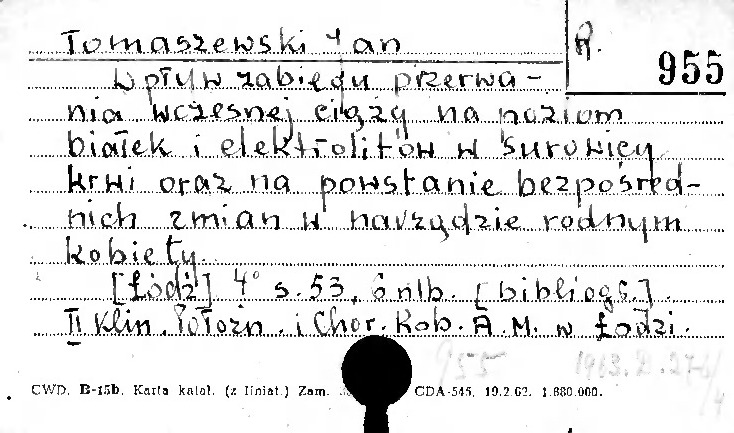 Tomaszewski Jan
R. 955
Wpływ zabiegu przerwa-
nia wczesnej ciąży na poziom
białek i elektrolitów w surowicy
krwi oraz na powstanie bezpośred-
nich zmian w narządzie rodnym
kobiety.
[Łódź] 4° s. 53, 6 nlb. [bibliogr.].
II Klin. Położn. i Chor. Kob. A.M. w Łodzi.
955
CWD. B-15b. Karta katal. (z liniat.) Zam. CDA-545. 19.2.62. 1.880.000.